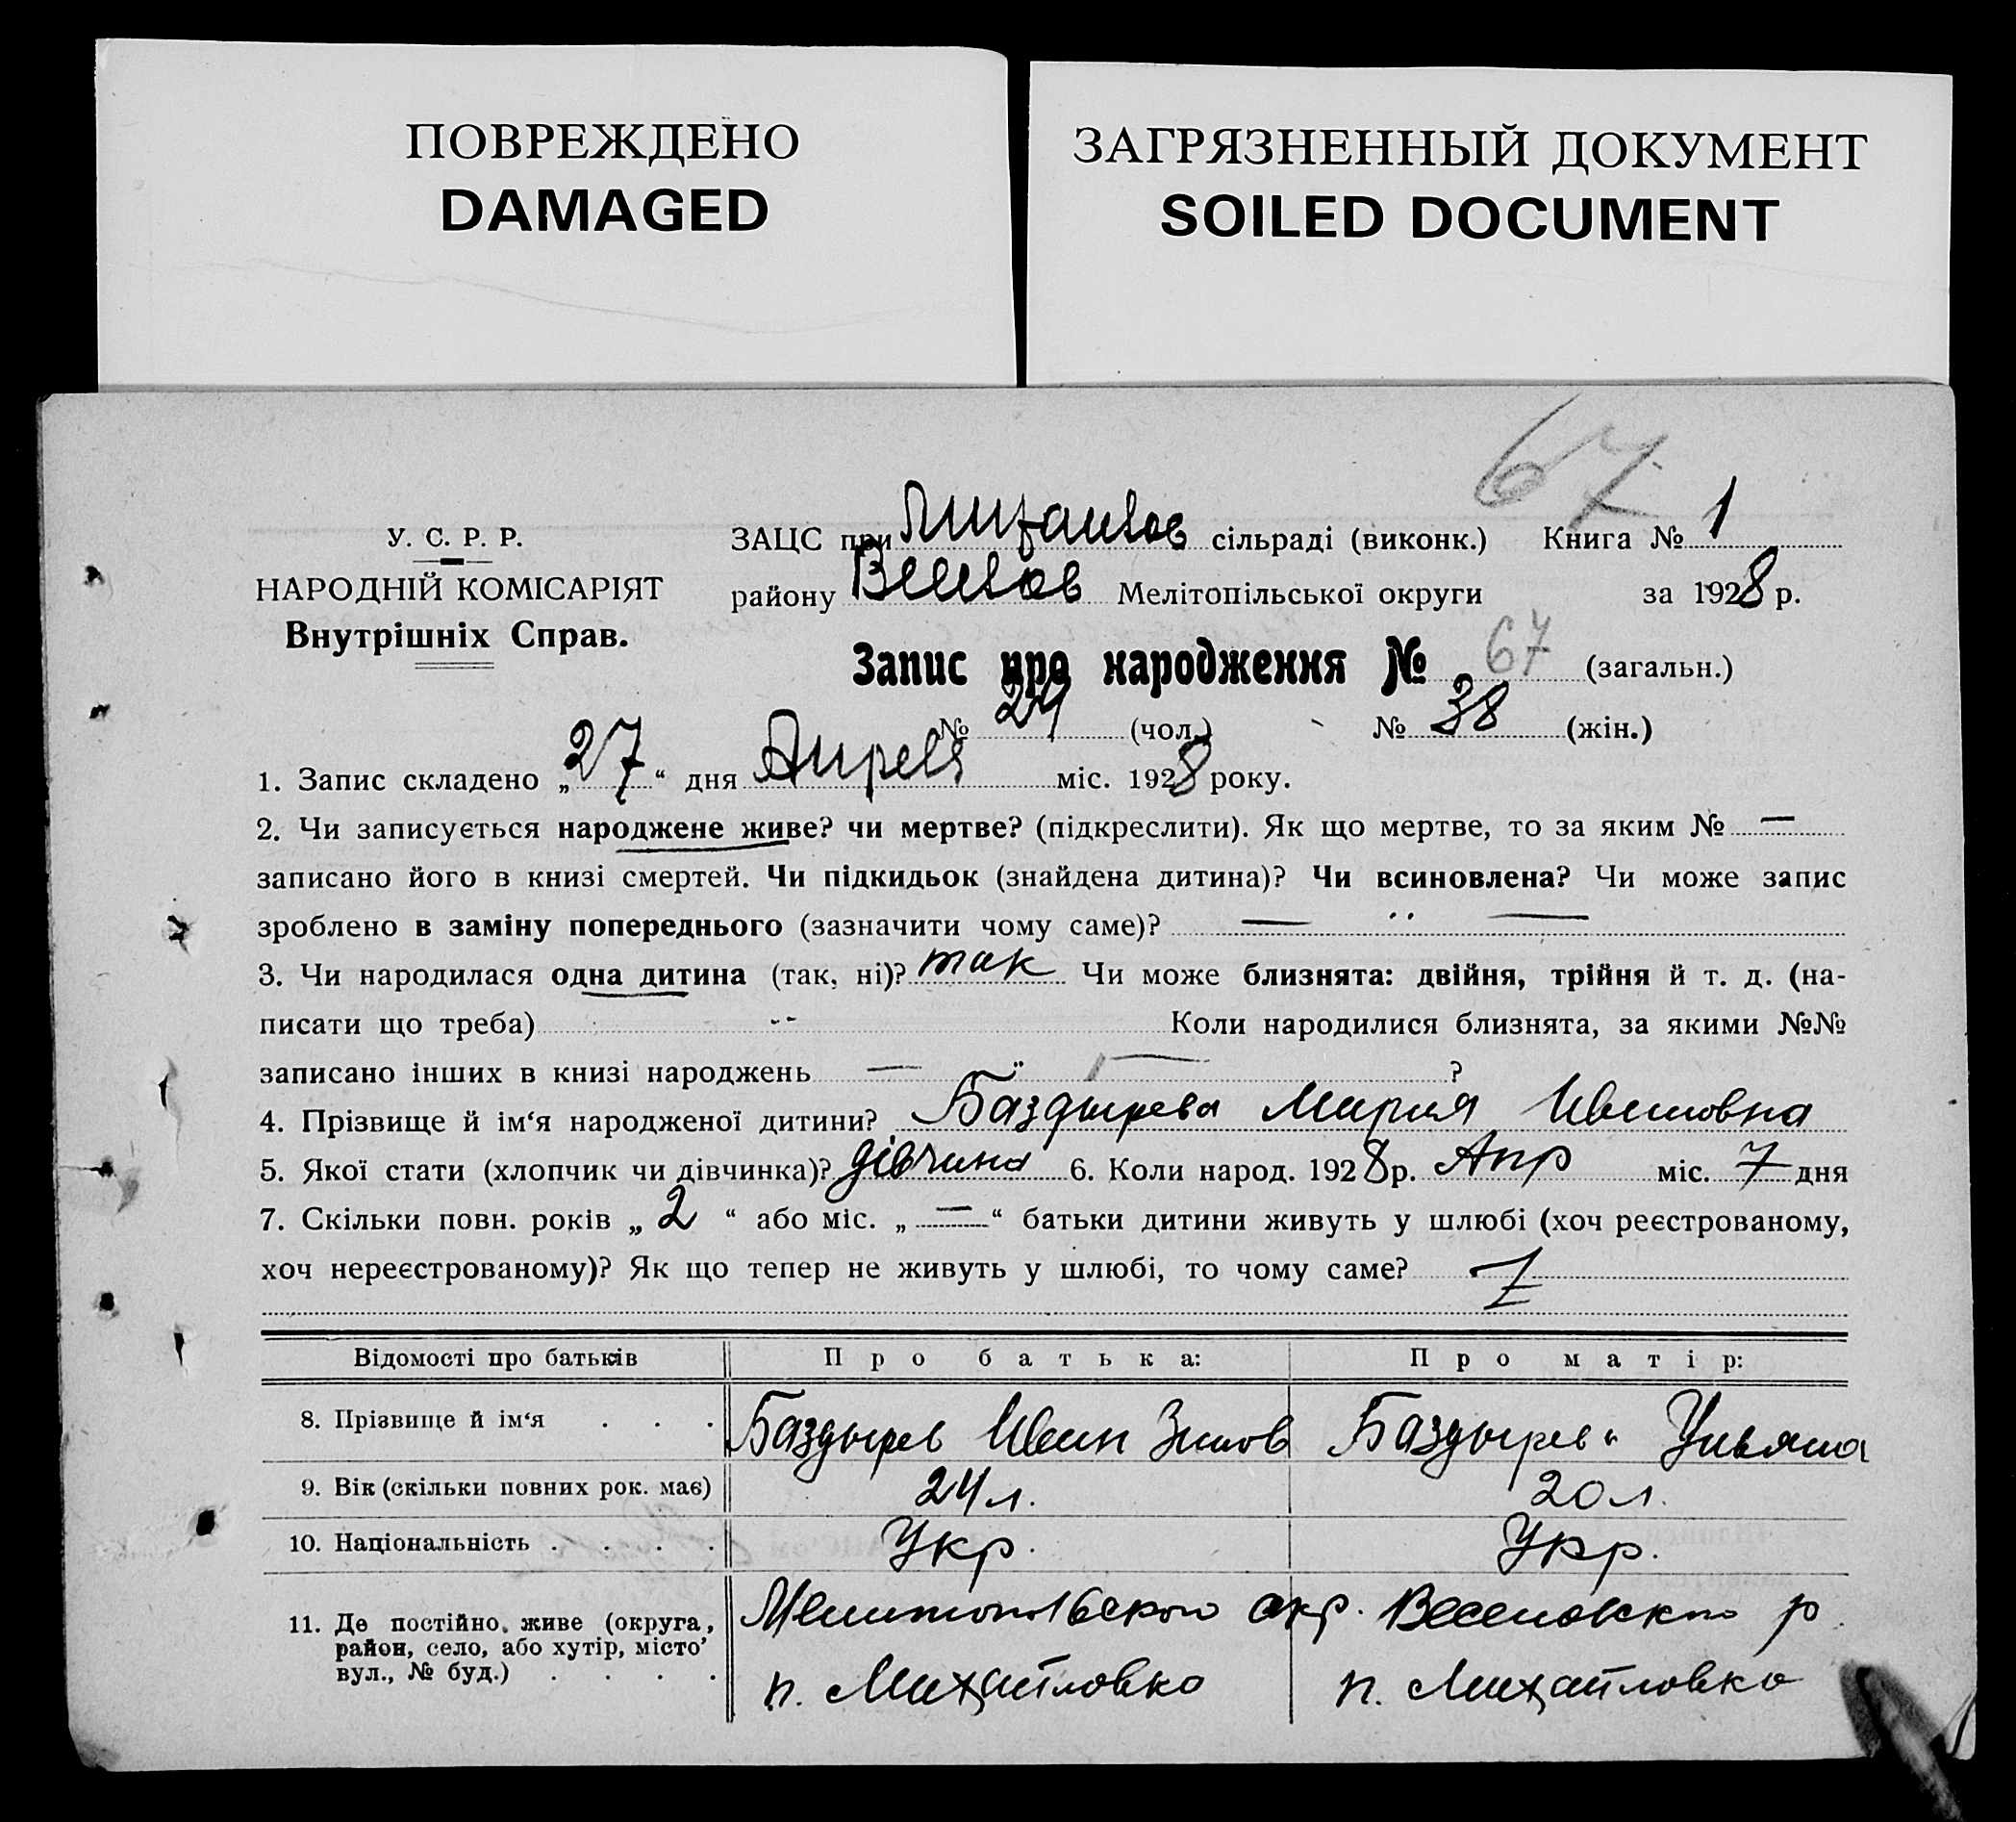 ПОВРЕЖДЕНО
DAMAGED
ЗАГРЯЗНЕННЫЙ ДОКУМЕНТ
SOILED DOCUMENT
67
У. С. Р. Р.
НАРОДНІЙ КОМІСАРІЯТ
Внутрішніх Справ.
ЗАЦС при Михайлов сільраді (виконк.) Книга № 1
району Весел​ов Мелітопільської округи за 1928 р.
Запис про народження № 67 (загальн.)
№ 29 (чол.) № 38 (жін.)
1. Запис складено „27“ дня Апреля міс. 1928 року.
2. Чи записується народжене живе? чи мертве? (підкреслити). Як що мертве, то за яким № —
записано його в книзі смертей. Чи підкидьок (знайдена дитина)? Чи всиновлена? Чи може запис
зроблено в заміну попереднього (зазначити чому саме)? — „ —
3. Чи народилася одна дитина (так, ні)? так Чи може близнята: двійня, трійня й т. д. (на-
писати що треба) Коли народилися близнята, за якими №№
записано інших в книзі народжень — „ — ?
4. Прізвище й ім‘я народженої дитини? Баздырева Мария Ивановна
5. Якої стати (хлопчик чи дівчинка)? дівчина 6. Коли народ. 1928 р. Апр міс. 7 дня
7. Скільки повн. років „ 2 “ або міс. „ — “ батьки дитини живуть у шлюбі (хоч реєстрованому,
хоч нереєстрованому)? Як що тепер не живуть у шлюбі, то чому саме?
Відомості про батьків Про батька: Про матір:
8. Прізвище й ім‘я . . . Баздырев Иван Баздырева Ульяна
9. Вік (скільки повних рок. має) 24 л. 20 л.
10. Національність . . . . Укр. Укр.
11. Де постійно живе (округа, район, село, або хутір, місто, вул., № буд.) . . . .
Мелитопольского окр. Веселовского р.
п. Михайловка п. Михайловка